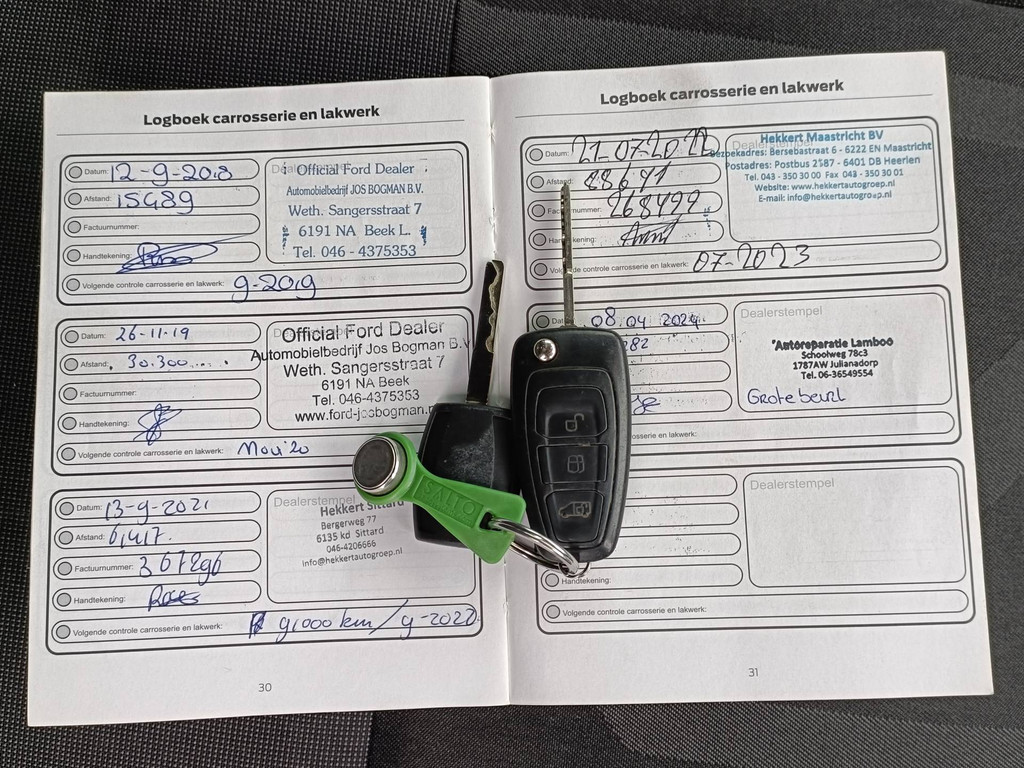 Logboek carrosserie en lakwerk
Datum: 12-9-2018
Afstand: 15489
Factuurnummer:
Handtekening:
Official Ford Dealer
Automobielbedrijf JOS BOGMAN B.V.
Weth. Sangersstraat 7
6191 NA Beek L.
Tel. 046 - 4375353
Volgende controle carrosserie en lakwerk: 9-2019
Datum: 26-11-19
Afstand: 30.300
Factuurnummer:
Handtekening:
Official Ford Dealer
Automobielbedrijf Jos Bogman B.V.
Weth. Sangersstraat 7
6191 NA Beek
Tel. 046-4375353
www.ford-josbogman.n
Volgende controle carrosserie en lakwerk: Nov '20
Datum: 13-9-2021
Afstand:
Factuurnummer: 367296
Handtekening:
Dealerstempel
Hekkert Sittard
Bergerweg 77
6135 kd Sittard
046-4206666
info@hekkertautogroep.nl
Volgende controle carrosserie en lakwerk: 9.000 km/9-2022
30
Logboek carrosserie en lakwerk
Datum: 21-07-2022
Afstand:
268499
Hekkert Maastricht BV
Bezoekadres: Bersebastraat 6 - 6222 EN Maastricht
Postadres: Postbus 2587 - 6401 DB Heerlen
Tel. 043 - 350 30 00 Fax 043 - 350 30 01
Website: www.hekkertautogroep.nl
E-mail: info@hekkertautogroep.nl
Volgende controle carrosserie en lakwerk: 07-2023
08 04 2024
282
Dealerstempel
Autoreparatie Lamboo
Schoolweg 78c3
1787AW Julianadorp
Tel. 06-36549554
Grote beurt
rosserie en lakwerk:
Dealerstempel
Handtekening:
Volgende controle carrosserie en lakwerk:
31
SALTO